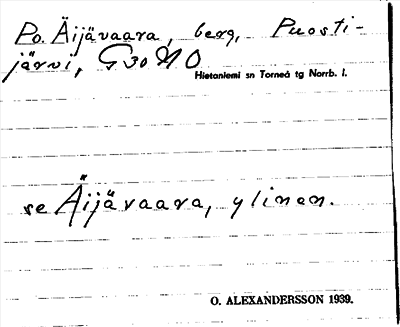 Po. Äijävaara, berg, Puosti-
järvi, G 30 N O
Hietaniemi sn Torneå tg Norrb. l.
se Äijävaara, ylinen.
O. ALEXANDERSSON 1939.